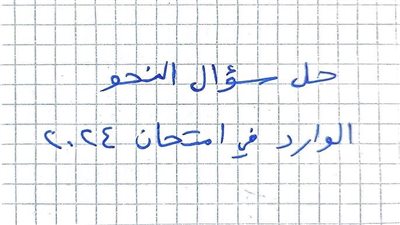 حل سؤال النحو
الوارد في امتحان ٢٠٢٤